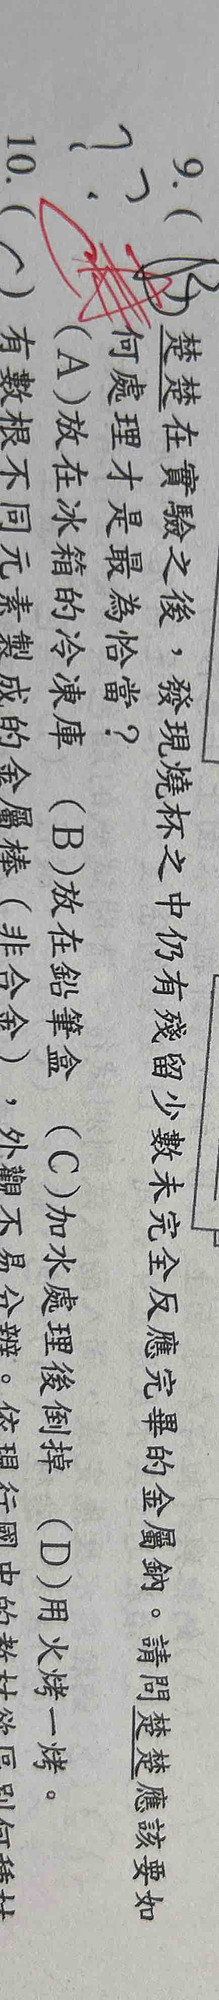 9. ( ) 楚楚在實驗之後，發現燒杯之中仍有殘留少數未完全反應完畢的金屬鈉。請問楚楚應該要如
何處理才是最為恰當？
(A)放在冰箱的冷凍庫 (B)放在鉛筆盒 (C)加水處理後倒掉 (D)用火烤一烤。
10. (C) 有數根不同元素製成的金屬棒（非合金），外觀不易分辨。依現行國中的教材欲區別何種材